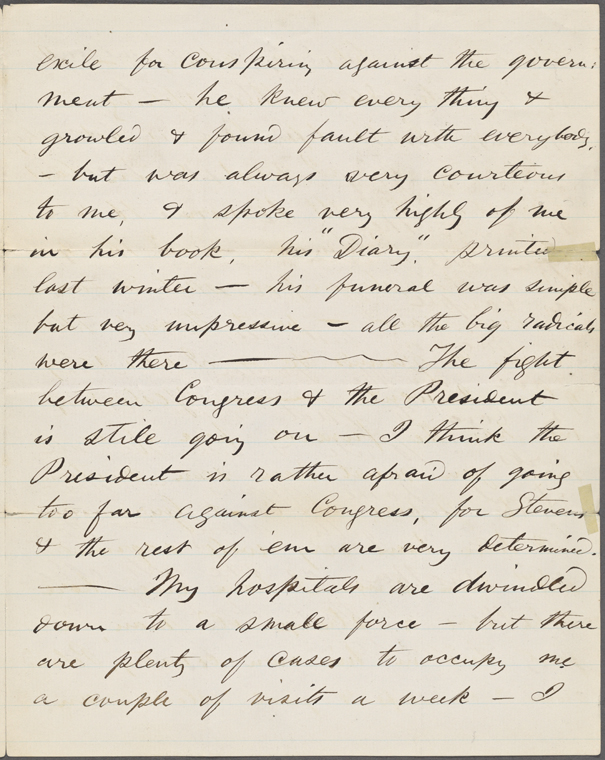 exile for conspiring against the govern-
ment — he knew every thing &
growled & found fault with everybody,
— but was always very courteous
to me, & spoke very highly of me
in his book, his "Diary", printed
last winter — his funeral was simple
but very impressive — all the big radicals
were there — The fight
between Congress & the President
is still going on — I think the
President is rather afraid of going
too far against Congress, for Stevens
& the rest of 'em are very determined.
— My hospitals are dwindled
down to a small force — but there
are plenty of cases to occupy me
a couple of visits a week — I